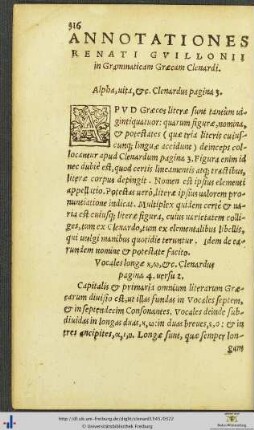 316
ANNOTATIONES
RENATI GVILLONII
in Grammaticam Græcam Clenardi.
Alpha, uita, &c. Clenardus pagina 3.
APVD Græcos literæ sunt tantùm ui-
gintiquatuor: quarum figuræ, nomina,
& potestates (quæ tria literis cuiusc-
cunq; linguæ accidunt) deinceps col-
locantur apud Clenardum pagina 3. Figura enim id
nec dubiè est, quod certis lineamentis atq; tractibus,
literæ corpus depingit. Nomen est ipsius elementi
appellatio. Potestas uerò, literæ ipsius ualorem pro-
nuntiatione indicat. Multiplex quidem certè & ua-
ria est cuiusq; literæ figura, cuius varietatem colli-
ges, tum ex Clenardo, tum ex elementalibus libellis,
qui uulgi manibus quotidie teruntur. Idem de ea-
rundem nomine & potestate facito.
Vocales longæ η, ω, &c. Clenardus
pagina 4. versu 2.
Capitalis & primaria omnium literarum Græ-
carum diuisio est, ut illas fundas in Vocales septem,
& in septendecim Consonantes. Vocales deinde sub-
diuidas in longas duas, η, ω: in duas breues, ε, ο: & in
tres ancipites, α, ι, υ. Longæ sunt, quæ semper lon-
gam
© Universitätsbibliothek Freiburg